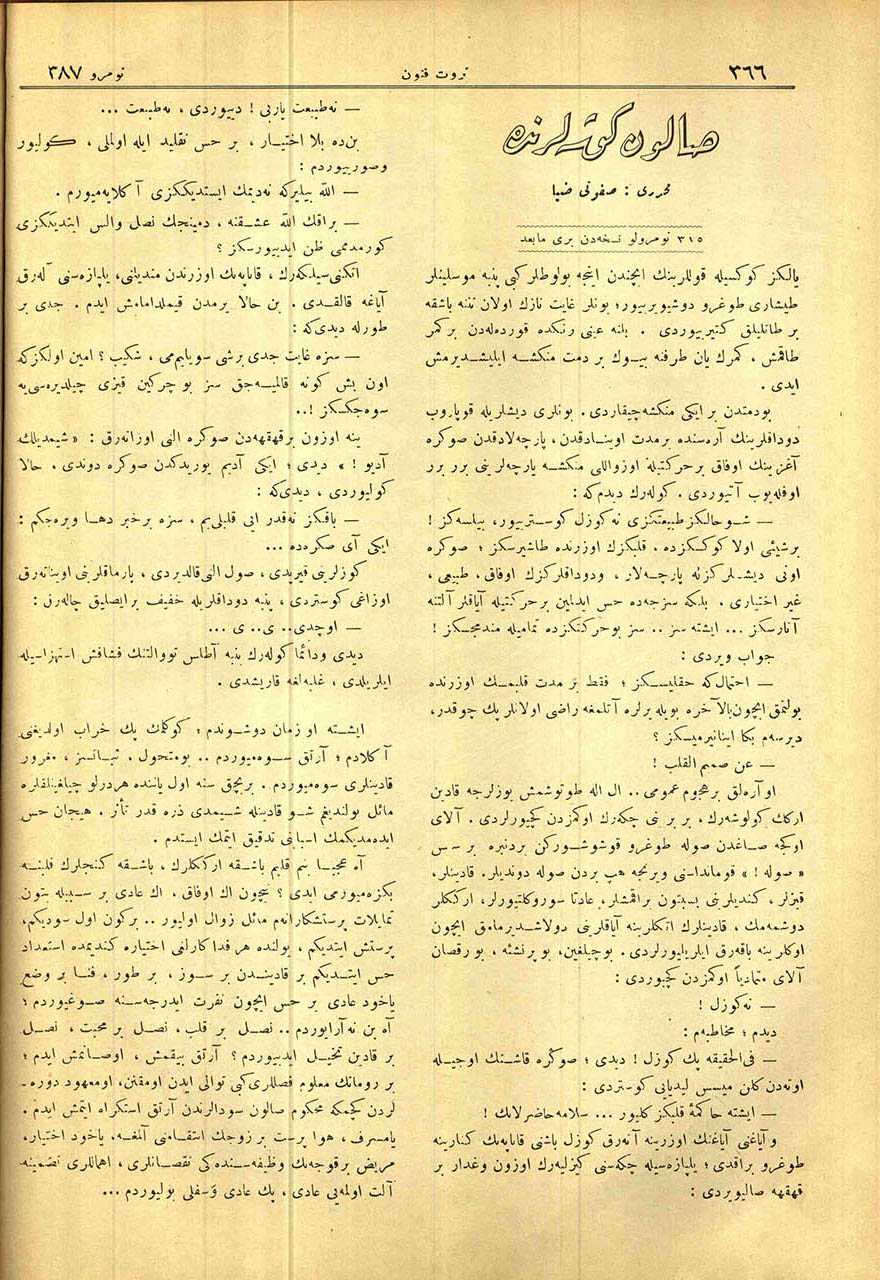 ٣٦٦
ثروت فنون
نومرو ٣٨٧
صالون كوشه لرنده
محرری : صفوتی ضیا
٣١٥ نومرولو نسخه‌دن بری مابعد
یالكز كوكسیله قوللرینك ایچندن اینجه بولوطلر كبی پنبه موسلینلر
طیشاری طوغرو دوشیویریور؛ بونلر غایت نازك اولان تننه باشقه
بر طاتلیلق كتیریوردی . یانه عینی رنكده قورده‌له‌دن بر كمر
طاقمش ، كمرك یان طرفنه بیوك بر دمت منكشه ایلیشدیرمش
ایدی .
بو دمتدن بر ایكی منكشه چیقاردی . بونلری دیشلریله قوپاروب
دوداقلرینك آره‌سنده بر مدت اوینادقدن، پارچه‌لادقدن صوكره
آغزینك اوفاق بر حركتیله اوزواللی منكشه پارچه‌لرینی برر برر
اوفله‌یوب آتیوردی . كوله‌رك دیدم كه :
— شو حالكز طبیعتكزی نه كوزل كوستریور، بیلسه‌كز !
برشیئی اولا كوككزده ، قلبكزك اوزرنده طاشیرسكز ؛ صوكره
اونی دیشلركزله پارچه‌لار ، ودوداقلركزك اوفاق، طبیعی ،
غیر اختیاری . بلكه سزجه‌ده حس ایدلمین بر حركتیله آیاقلر آلتنه
آتارسكز ... ایشته سز .. سز بو حركتكزده تمامیله مندمجسكز !
جواب ویردی :
— احتمال كه حقلیسكز ؛ فقط بر مدت قلبمك اوزرنده
بولنمق ایچون بالآخره بویله یرلره آتلمغه راضی اولانلر پك چوقدر،
دیرسه‌م بكا اینانیرمیسكز ؟
— عن صمیم القلب !
او آره‌لق بر هجوم عمومی .. ال اله طوتوشمش یوزلرجه قادین
اركك كولوشه‌رك ، بر برنی چكه‌رك اوكمزدن كچیورلردی . آلای
اوكجه صاغدن صوله طوغرو قوشوشوركن بردنبره بر سس
« صوله ! » قومانداسنی ویرنجه هپ بردن صوله دوندیلر. قادینلر،
قیزلر ، كندیلرینی بسبتون براقمشلر، عادتا سوروكلنیورلر، ارككلر
دوشمه‌مك ، قادینلرك اتكلرینه آیاقلرینی دولاشدیرمامق ایچون
اوكلرینه باقه‌رق ایلریلیورلردی . بو چیلغین، بو پرنشئه ، بو رقصان
آلای متمادیاً اوكمزدن كچیوردی :
— نه كوزل !
دیدم ؛ مخاطبه‌م :
— فی‌الحقیقه پك كوزل ! دیدی ؛ صوكره قاشنك اوجیله
اوته‌دن كلن میسس لیدیایی كوستردی :
— ایشته حاكمهٔ قلبكز كلیور ... سلامه حاضرلانك !
و آیاغنی آیاغنك اوزرینه آته‌رق كوزل باشنی قاناپه‌نك كنارینه
طوغرو براقدی ؛ یلپازه‌سیله چكه‌سنی كیزلیه‌رك اوزون وغدار بر
قهقهه صالیویردی :
— نه طبیعت یاربی ! دییوردی ، نه طبیعت ...
بن‌ده بلا اختیار ، بر حس تقلید ایله اولملی ، كولیور
وصوریوردم :
— الله بیلیر كه نه‌دیمك ایستدیككزی آكلایه‌میورم .
— براقك الله عشقنه ، ده‌مینجك نصل والس ایتدیككزی
كورمدممی ظن ایدییورسكز ؟
اتكنی سیلكه‌رك ، قاناپه‌نك اوزرندن مندیلنی، یلپازه‌سنی آله‌رق
آیاغه قالقدی . بن حالا یرمدن قیملدامامش ایدم . جدی بر
طورله دیدی كه :
— سزه غایت جدی برشی سویلیه‌یم‌می ، شكیب ؟ امین اولكز كه
اون بش كونه قالمیه‌جق سز بو چركین قیزی چیلدیره‌سی‌یه
سوه‌جكسكز !..
ینه اوزون بر قهقهه‌دن صوكره النی اوزاته‌رق : « شیمدیلك
آدیو ! » دیدی ؛ ایكی آدیم یوریدكدن صوكره دوندی ، حالا
كولیوردی ، دیدی كه :
— باقكز نه‌قدر ایی قلبلی‌یم ، سزه بر خبر دها ویره‌جكم :
ایكی آی صكره‌ده ...
كوزلرینی قیریدی ، صول النی قالدیردی ، پارماقلرینی اویناته‌رق
اوزاغی كوستردی ، پنبه دوداقلریله خفیف بر ایصلیق چاله‌رق :
— اوچدی.. ی.. ی ...
دیدی ودائما كوله‌رك پنبه آطلس تووالتنك فشافش استهزاسیله
ایلریلدی ، غلبه‌لغه قاریشدی .
ایشته او زمان دوشوندم ؛ كوكلمك پك خراب اولدیغنی
آكلادم ؛ آرتق سوه‌میوردم .. بو متحول . ثباتسز ، مغرور
قادینلری سوه‌میوردم . بر بچق سنه اول یاننده هر درلو چیلغینلقلره
مائل بولندیغم شو قادینله شیمدی ذره قدر تأثر . هیجان حس
ایده‌مدیكمك اسبابنی تدقیق ایتمك ایستدم .
آه عجبا بنم قلبم باشقه ارككلرك ، باشقه كنجلرك قلبنه
بكزه‌میورمی ایدی ؟ نیچون اك اوفاق ، اك عادی بر سببله بتون
تمایلات پرستشكارانه‌م مائل زوال اولیور .. بر كون اول سودیكم،
پرستش ایتدیكم ، یولنده هر فداكارلغی اختیاره كندیمده استعداد
حس ایتدیكم بر قادیندن بر سوز ، بر طور ، فنا بر وضع
یاخود عادی بر حس ایچون نفرت ایدرجه‌سنه صوغیوردم ؛
آه بن نه آرایوردم .. نصل بر قلب ، نصل بر محبت ، نصل
بر قادین تخیل ایدییوردم ؟ آرتق بیقمش ، اوصانمش ایدم ؛
بر رومانك معلوم فصللری كبی توالی ایدن اومفتن، او معهود دوره‌
لردن كچمكه محكوم صالون سودالرندن آرتق استكراه ایتمش ایدم .
یا مسرف ، هوا پرست بر زوجك انتقامنی آلمغه، یاخود اختیار،
مریض بر قوجه‌نك وظیفه‌سنده‌كی نقصانلری ، اهماللری تضمینه
آلت اولمه‌یی عادی ، پك عادی وسفلی بولیوردم ...